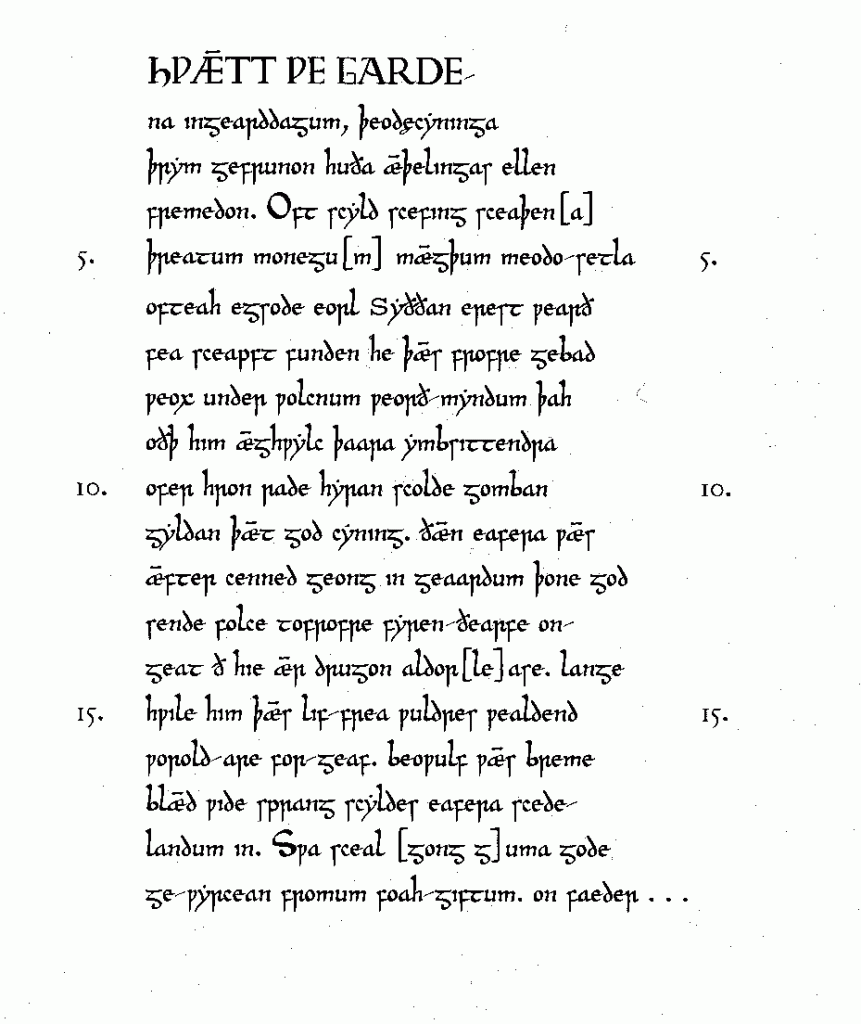 HǷǢTT ǷE GARDE-
na ingearddagum, þeodęcẏninga
þrẏm gefrunon huða ǣþelingas ellen
fremedon. Oft scẏld scefing sceaþen[a]
5. þreatum monegu[m] mǣgþum meodo-setla 5.
ofteah egsode eorl Sẏððan erest ƿearð
fea sceaƿft funden he þǣs frofre gebad
ƿeox under ƿolcnum ƿeorð-mẏndum þah
oðþ him ǣghƿẏlc þaara ẏmbsittendra
10. ofer hron rade hẏran scolde gomban 10.
gẏldan þǣt god cẏning. ðǣn eafera ƿǣs
ǣfter cenned geong in geaardum þone god
sende folce tofrofre fẏren-ðearfe on-
geat ð hie ǣr drugon aldor[le]ase. lange
15. hƿile him þǣs lif-frea ƿuldres ƿealdend 15.
ƿorold-are for-geaf. beoƿulf ƿǣs breme
blǣd ƿide sprang scẏldes eafera scede-
landum in. Sƿa sceal [gong g]uma gode
ge-ƿẏrcean fromum foah-giftum. on faeder . . .